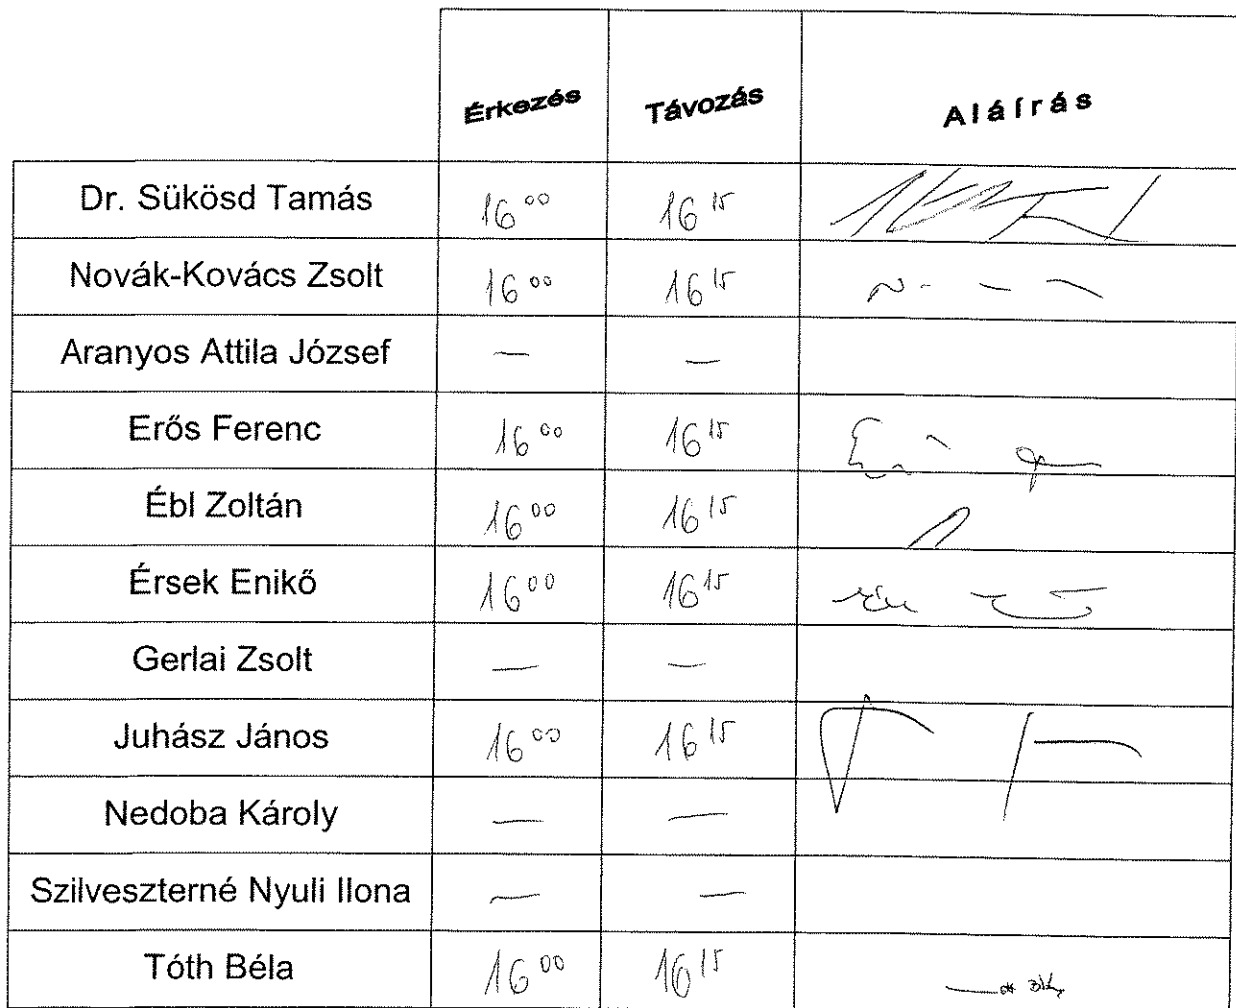 Érkezés Távozás Aláírás
Dr. Sükösd Tamás 16 00 16 15
Novák-Kovács Zsolt 16 00 16 15
Aranyos Attila József — —
Erős Ferenc 16 00 16 15
Ébl Zoltán 16 00 16 15
Érsek Enikő 16 00 16 15
Gerlai Zsolt — —
Juhász János 16 00 16 15
Nedoba Károly — —
Szilveszterné Nyuli Ilona — —
Tóth Béla 16 00 16 15